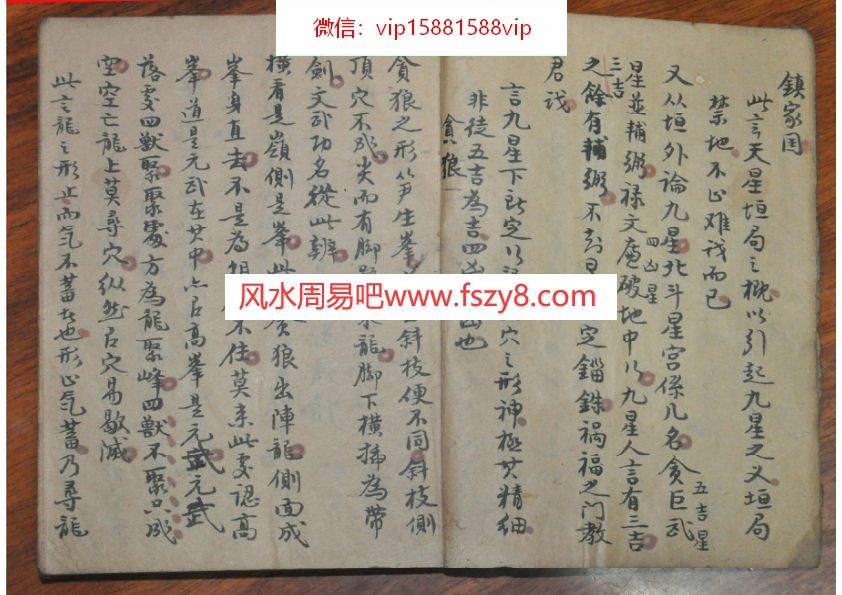 微信：vip15881588vip
鎮家囯
此言天星垣局之概以引起九星之义垣局
禁地不止难识而已
又从垣外論九星北斗星宮係几名貪巨武
五吉星
星並輔弼禄文廉破地中以九星人言有三吉
四凶星
三吉
之餘有輔弼不知星定錙銖祸福之門教
君识
言九星下 定以 穴之形神極其精细
非徒五吉為吉四凶 凶也
貪狼
貪狼之形笋生峯 斜枝便不同斜枝側
頂穴不成尖而有脚 龍脚下横插為帶
劍文武功名從此辨
横看是嶺側是峯此 貪狼出陣龍側面成
峯身直去不是為 不住莫来此處認高
峯道是元武在其中亦有高峯是元武元武
落處四獸聚聚處方為龍聚峰四獸不聚只成
空空亡龍上莫尋穴纵然有穴易歇滅
此言龍之形止而气不蓄 也形止气蓄乃尋龍
风水周易吧www.fszy8.com